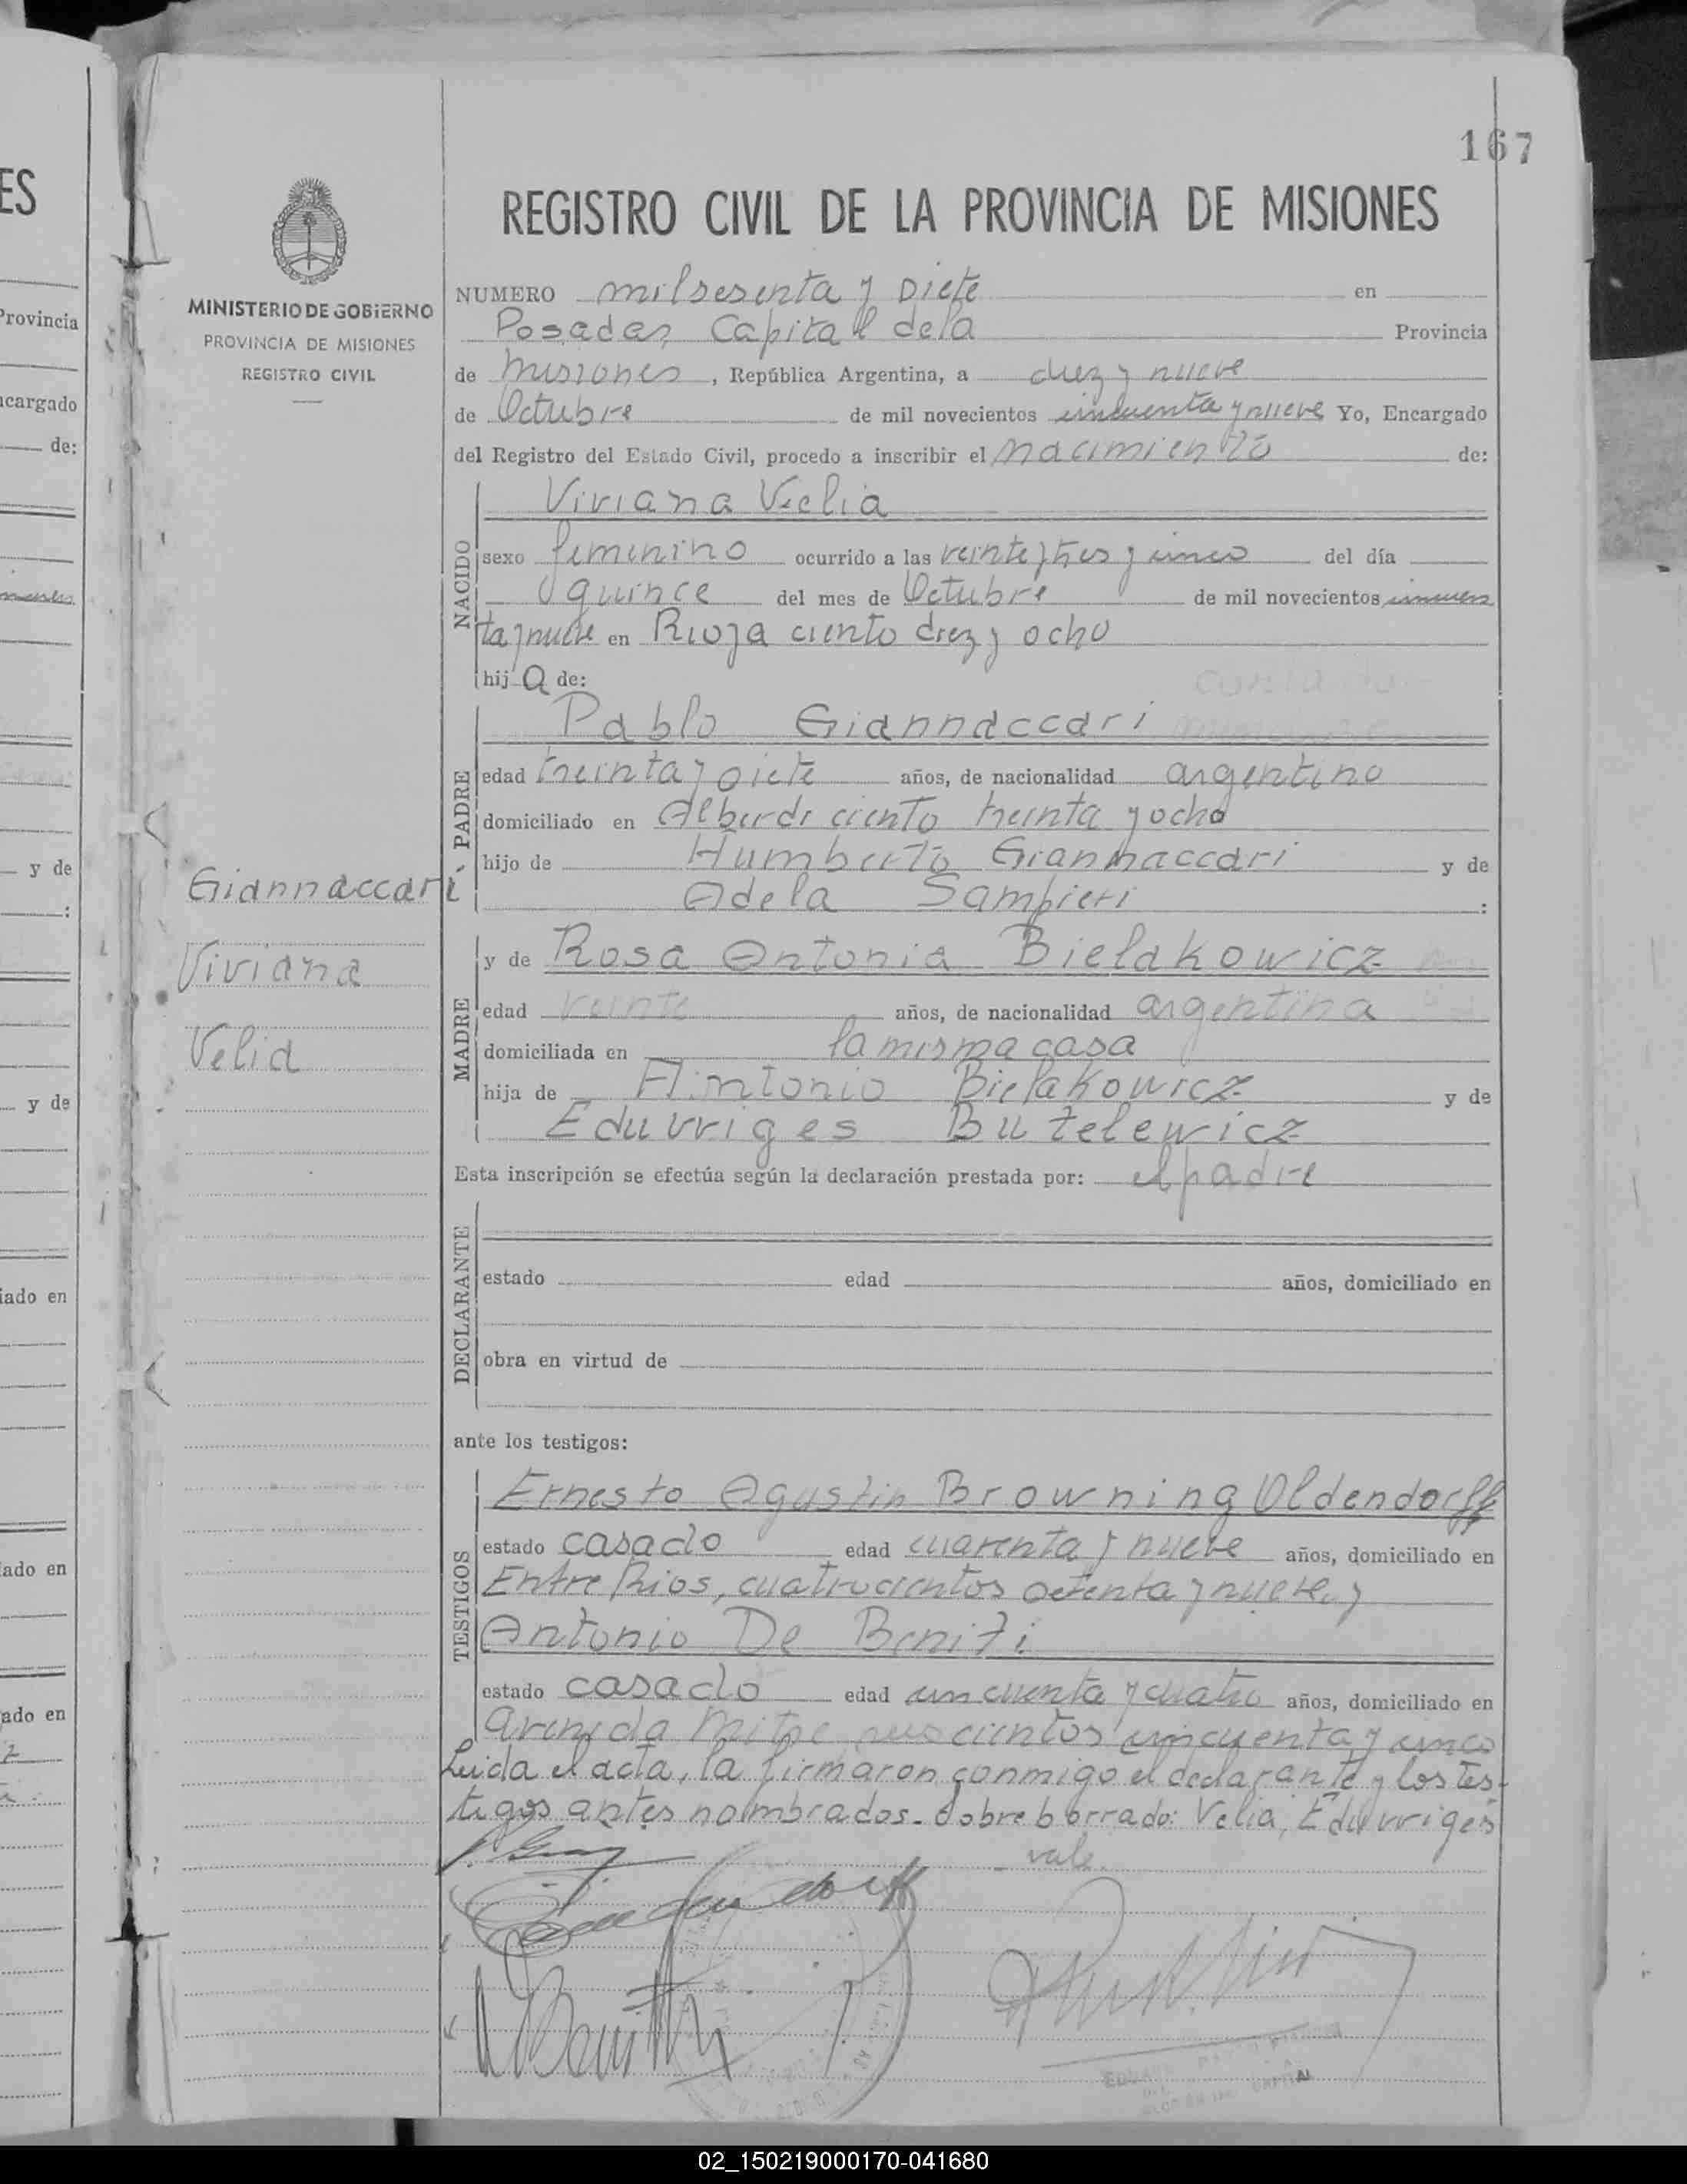 167
REGISTRO CIVIL DE LA PROVINCIA DE MISIONES
MINISTERIO DE GOBIERNO
PROVINCIA DE MISIONES
REGISTRO CIVIL
NUMERO milsesenta y siete en
Posadas Capital dela Provincia
de Misiones, República Argentina, a diez y nueve
de Octubre de mil novecientos cincuenta y nueve Yo, Encargado
del Registro del Estado Civil, procedo a inscribir el nacimiento de:
NACIDO
Viviana Velia
sexo femenino ocurrido a las veinte y tres y cinco del día
quince del mes de Octubre de mil novecientos cincuen
ta y nueve en Rioja ciento diez y ocho
hij a de:
PADRE
Pablo Giannaccari
edad treinta y siete años, de nacionalidad argentino
domiciliado en Alberdi ciento treinta y ocho
hijo de Humberto Giannaccari y de
Adela Sampieri :
Giannaccari
Viviana
Velia
MADRE
y de Rosa Antonia Bielakowicz
edad veinte años, de nacionalidad argentina
domiciliada en la misma casa
hija de Antonio Bielakowicz y de
Eduvviges Butelewicz
Esta inscripción se efectúa según la declaración prestada por: el padre
DECLARANTE
estado edad años, domiciliado en
obra en virtud de
ante los testigos:
TESTIGOS
Ernesto Agustin Browning Oldendorff
estado casado edad cuarenta y nueve años, domiciliado en
Entre Rios, cuatrocientos setenta y nueve, y
Antonio De Beniti
estado casado edad cincuenta y cuatro años, domiciliado en
avenida Mitre cientos cincuenta y cinco
Leida el acta, la firmaron conmigo el declarante y los tes-
tigos antes nombrados. Sobre borrado: Velia, Eduvviges
vale.
02_150219000170-041680